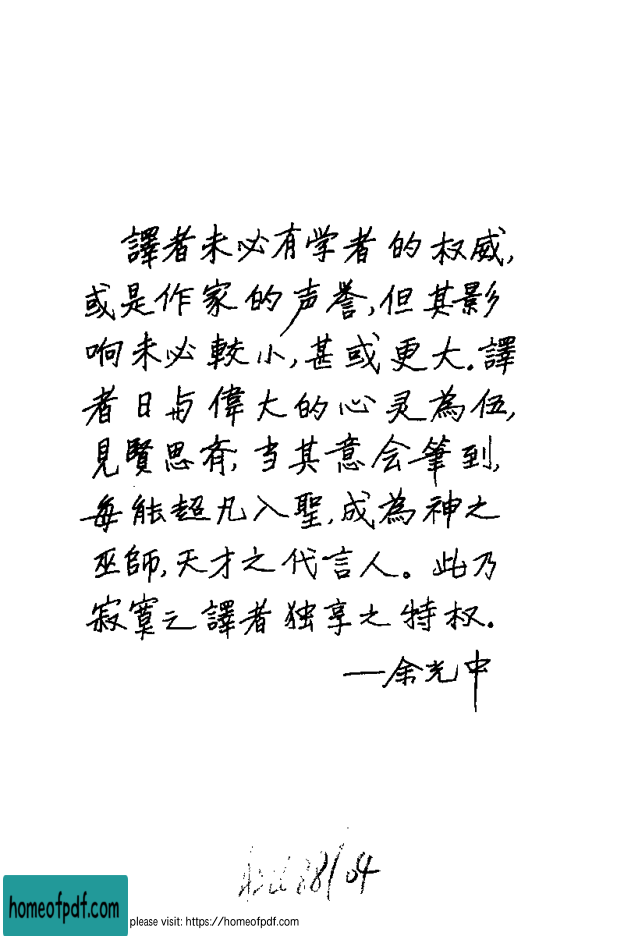 譯者未必有学者的权威,
或是作家的声誉,但其影
响未必較小,甚或更大.譯
者日与偉大的心灵為伍,
見賢思齊,当其意会筆到,
每能超凡入聖,成為神之
巫師,天才之代言人。此乃
寂寞之譯者独享之特权.
—余光中
88/04
homeofpdf.com
please visit: https://homeofpdf.com